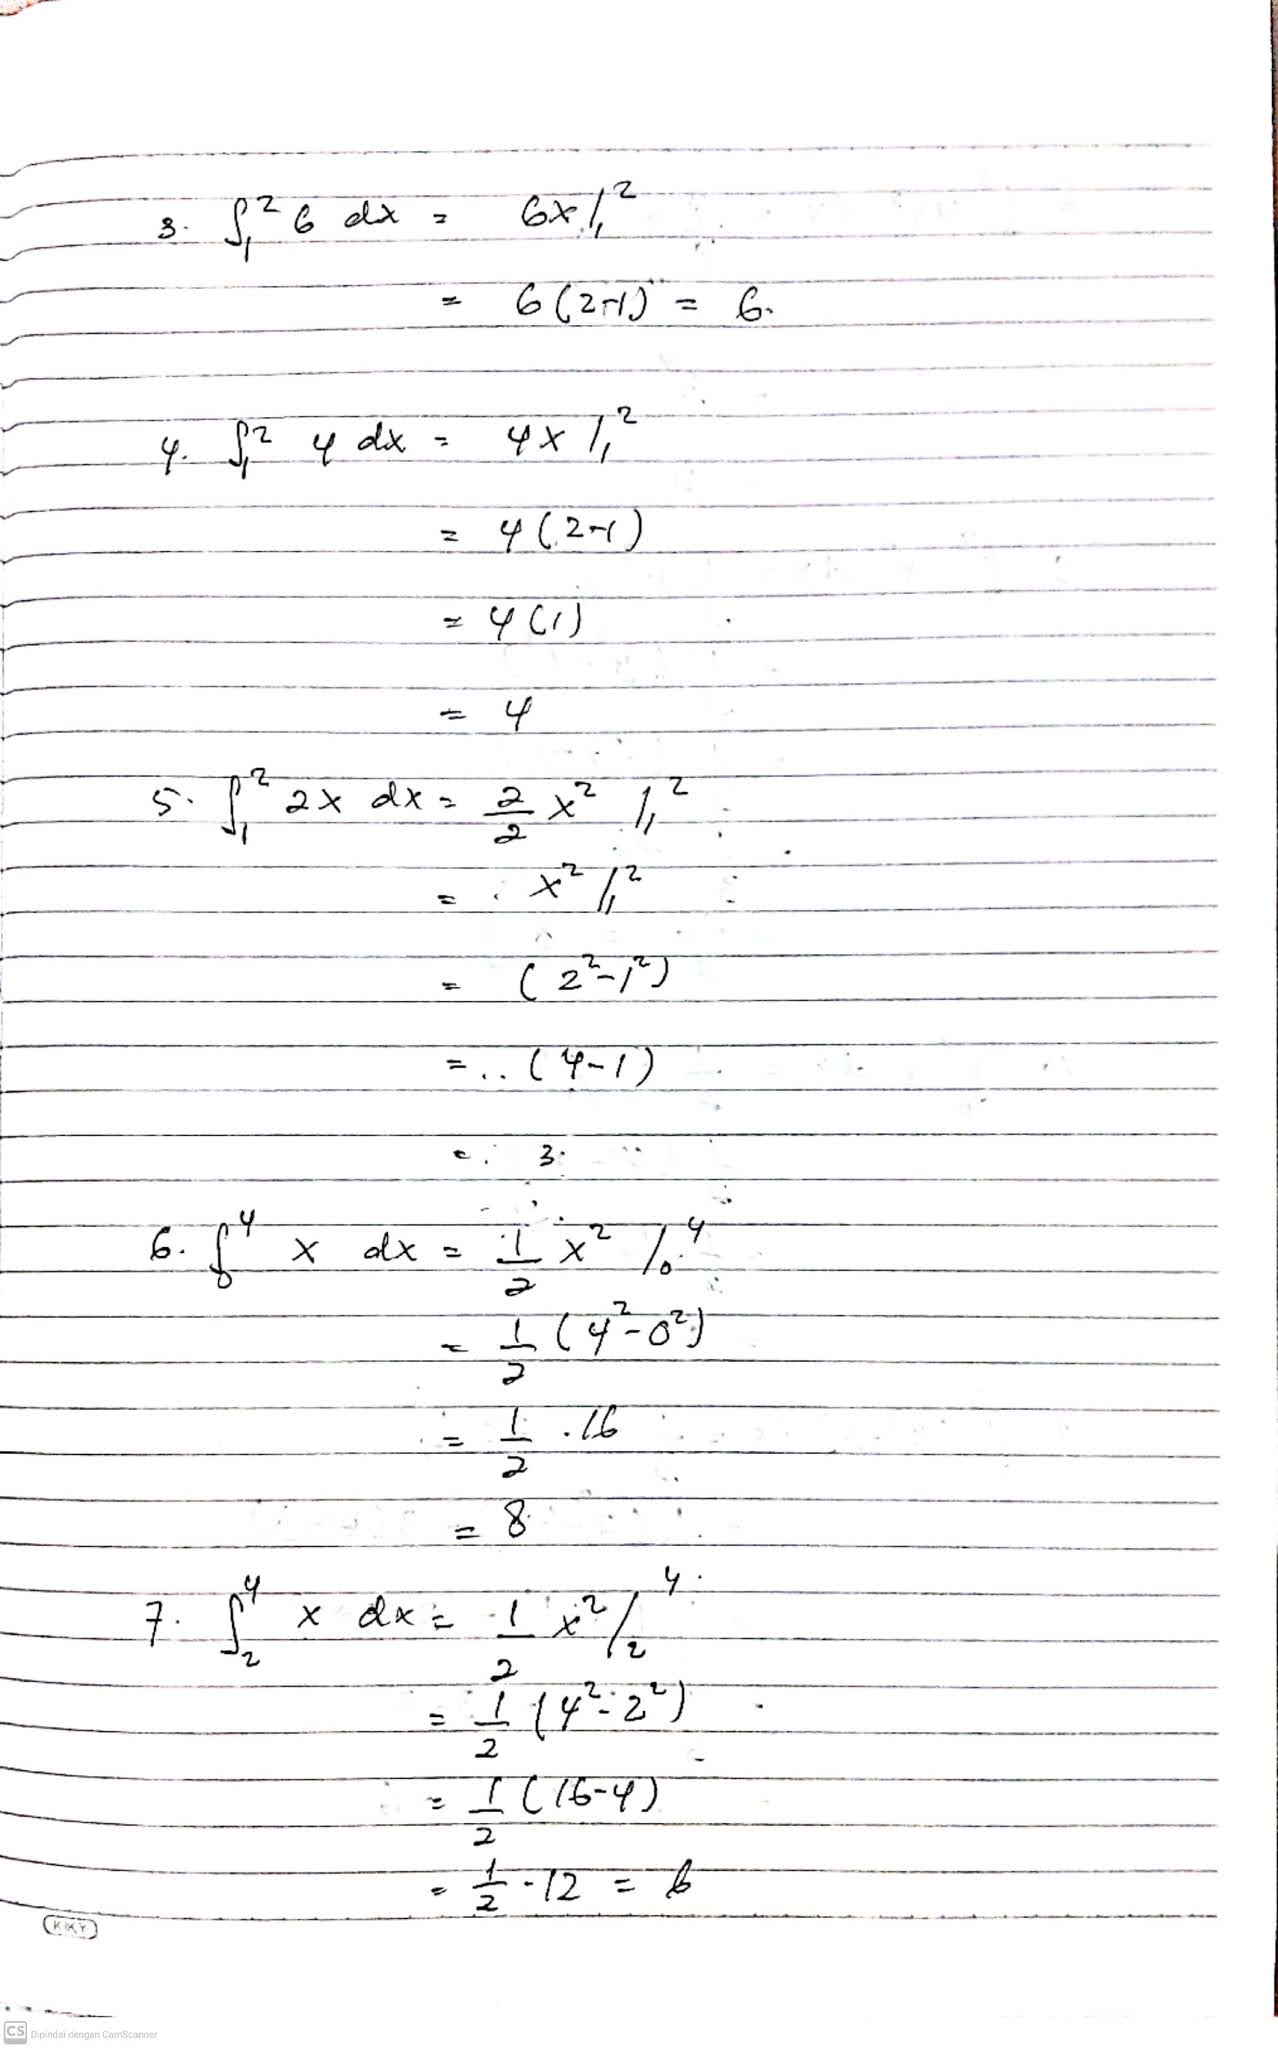 3. ∫₁² 6 dx = 6x /₁²
= 6 (2-1) = 6.
4. ∫₁² 4 dx = 4x /₁²
= 4 (2-1)
= 4 (1)
= 4
5. ∫₁² 2x dx = 2/2 x² /₁²
= x² /₁²
= (2²-1²)
= (4-1)
= 3
6. ∫₀⁴ x dx = 1/2 x² /₀⁴
= 1/2 (4²-0²)
= 1/2 . 16
= 8
7. ∫₂⁴ x dx = 1/2 x² /₂⁴
= 1/2 (4²-2²)
= 1/2 (16-4)
= 1/2 . 12 = 6
KIKY
CS Dipindai dengan CamScanner